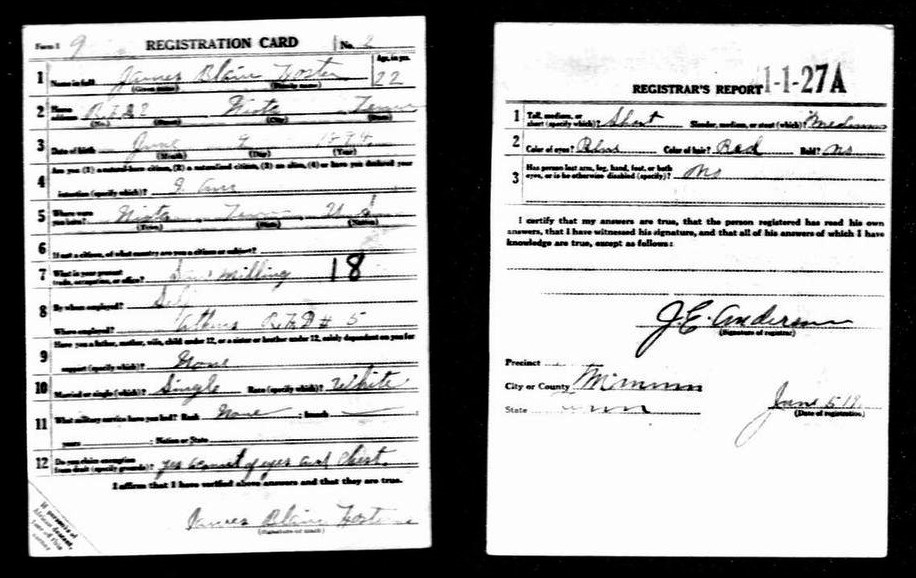 Form 1 REGISTRATION CARD No. 2
Age, in yrs.
1 Name in full James Blain Foster 22
(Given name) (Family name)
2 Home address R.F.D. Niota Tenn
(No.) (Street) (City) (State)
3 Date of birth June 9
(Month) (Day) (Year)
4 Are you (1) a natural-born citizen, (2) a naturalized citizen, (3) an alien, (4) or have you declared your
intention (specify which)? I am
5 Where were you born? Niota Tenn
(Town) (State) (Nation)
6 If not a citizen, of what country are you a citizen or subject?
7 What is your present trade, occupation, or office? Milling 18
8 By whom employed? Self
Where employed? Athens R.F.D # 5
9 Have you a father, mother, wife, child under 12, or a sister or brother under 12, solely dependent on you for
support (specify which)? None
10 Married or single (which)? Single Race (specify which)? White
11 What military service have you had? Rank None ; branch
years ; Nation or State
12 Do you claim exemption from draft (specify grounds)? yes account of eyes and Chest.
I affirm that I have verified above answers and that they are true.
James Blain Foster
(Signature or mark)
If person is of African descent, tear off this corner
REGISTRAR'S REPORT 41-1-27A
1 Tall, medium, or short (specify which)? Short Slender, medium, or stout (which)? Medium
2 Color of eyes? Blue Color of hair? Red Bald? No
3 Has person lost arm, leg, hand, foot, or both eyes, or is he otherwise disabled (specify)? No
I certify that my answers are true, that the person registered has read his own
answers, that I have witnessed his signature, and that all of his answers of which I have
knowledge are true, except as follows:
J.E. Anderson
(Signature of registrar)
Precinct
City or County McMinn
State
June 5 19
(Date of registration)